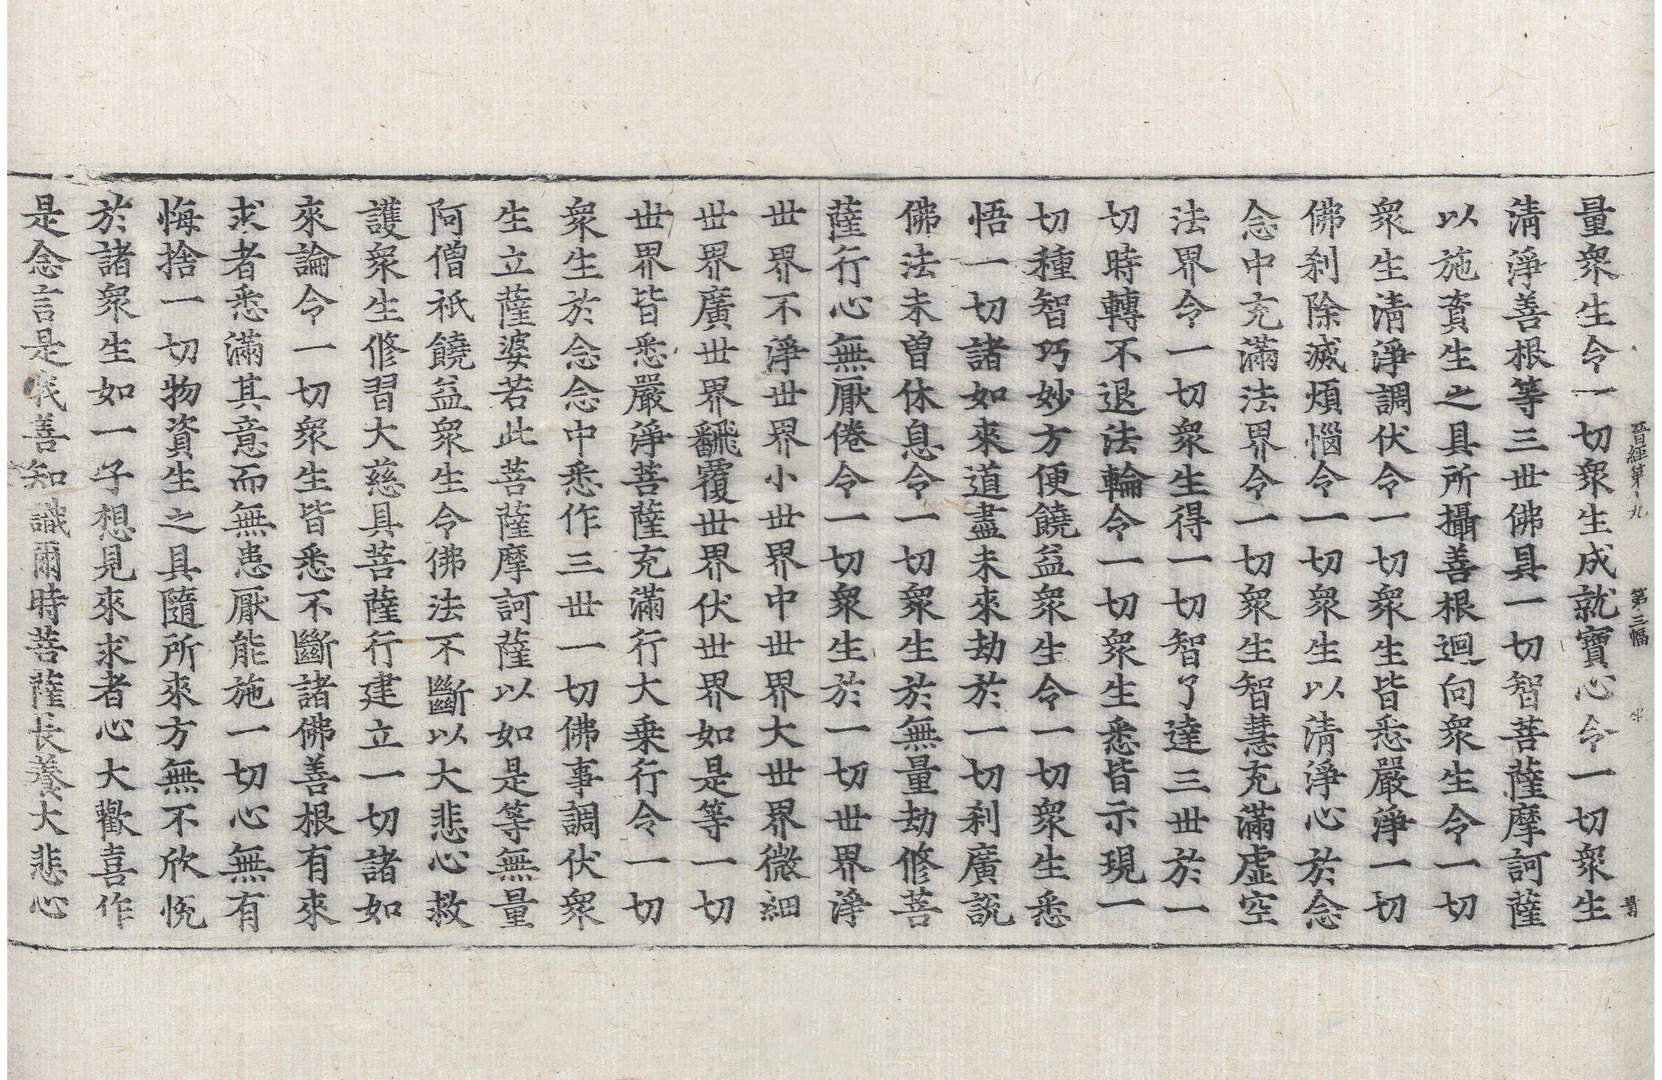 晉經第十九　第三幅
量衆生令一切衆生成就寶心令一切衆生
清淨善根等三世佛具一切智菩薩摩訶薩
以施資生之具所攝善根迴向衆生令一切
衆生清淨調伏令一切衆生皆悉嚴淨一切
佛刹除滅煩惱令一切衆生以清淨心於念
念中充滿法界令一切衆生智慧充滿虛空
法界令一切衆生得一切智了達三世於一
切時轉不退法輪令一切衆生悉皆示現一
切種智巧妙方便饒益衆生令一切衆生悉
悟一切諸如來道盡未來劫於一切刹廣說
佛法未曽休息令一切衆生於無量劫修菩
薩行心無厭倦令一切衆生於一切世界淨
世界不淨世界小世界中世界大世界微細
世界廣世界翻覆世界伏世界如是等一切
世界皆悉嚴淨菩薩充滿行大乗行令一切
衆生於念念中悉作三世一切佛事調伏衆
生立薩婆若此菩薩摩訶薩以如是等無量
阿僧祇饒益衆生令佛法不斷以大悲心救
護衆生修習大慈具菩薩行建立一切諸如
來論令一切衆生皆悉不斷諸佛善根有來
求者悉滿其意而無患厭能施一切心無有
悔捨一切物資生之具隨所來方無不欣悅
於諸衆生如一子想見來求者心大歡喜作
是念言是我善知識爾時菩薩長養大悲心